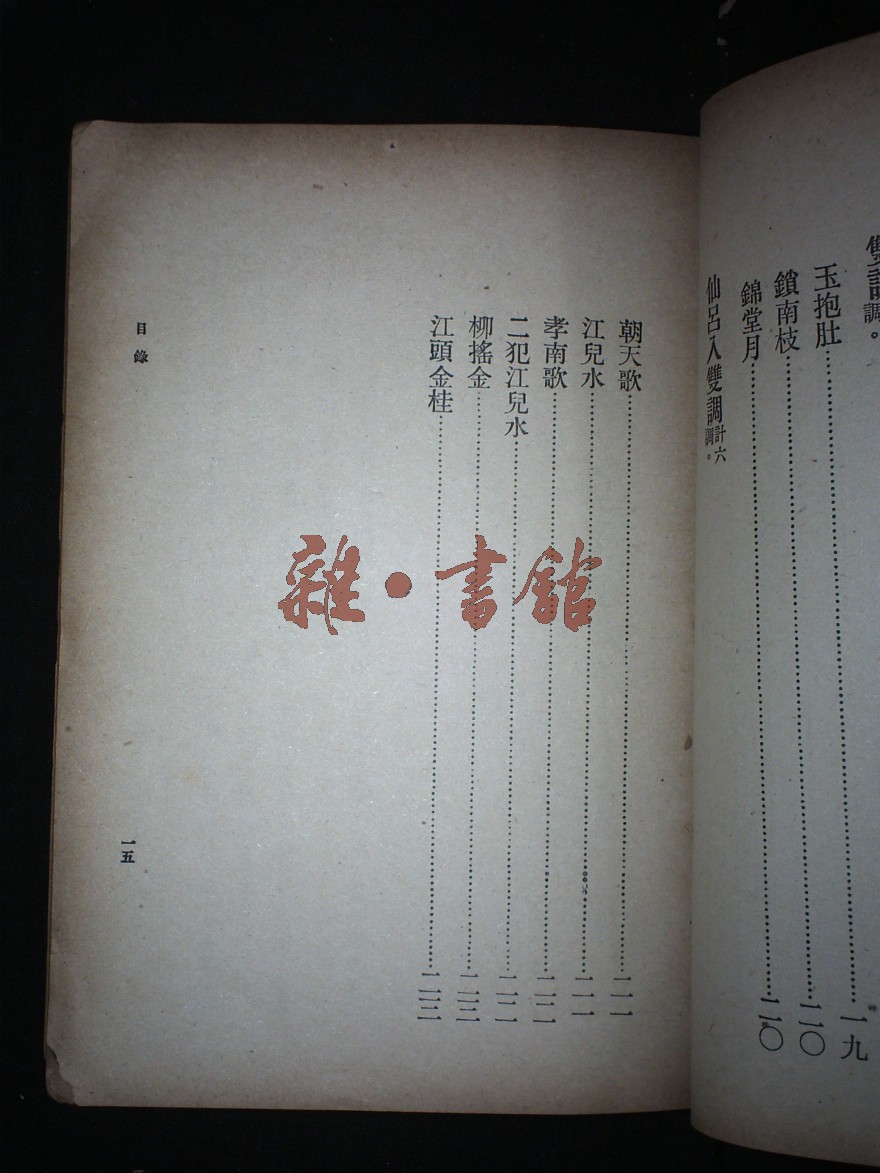 雙調調。
玉抱肚……一九
鎖南枝……二〇
錦堂月……二〇
仙呂入雙調計六調。
朝天歌……二一
江兒水……二一
孝南歌……二二
二犯江兒水……二二
柳搖金……二三
江頭金桂……二三
目錄
一五
雜•書館